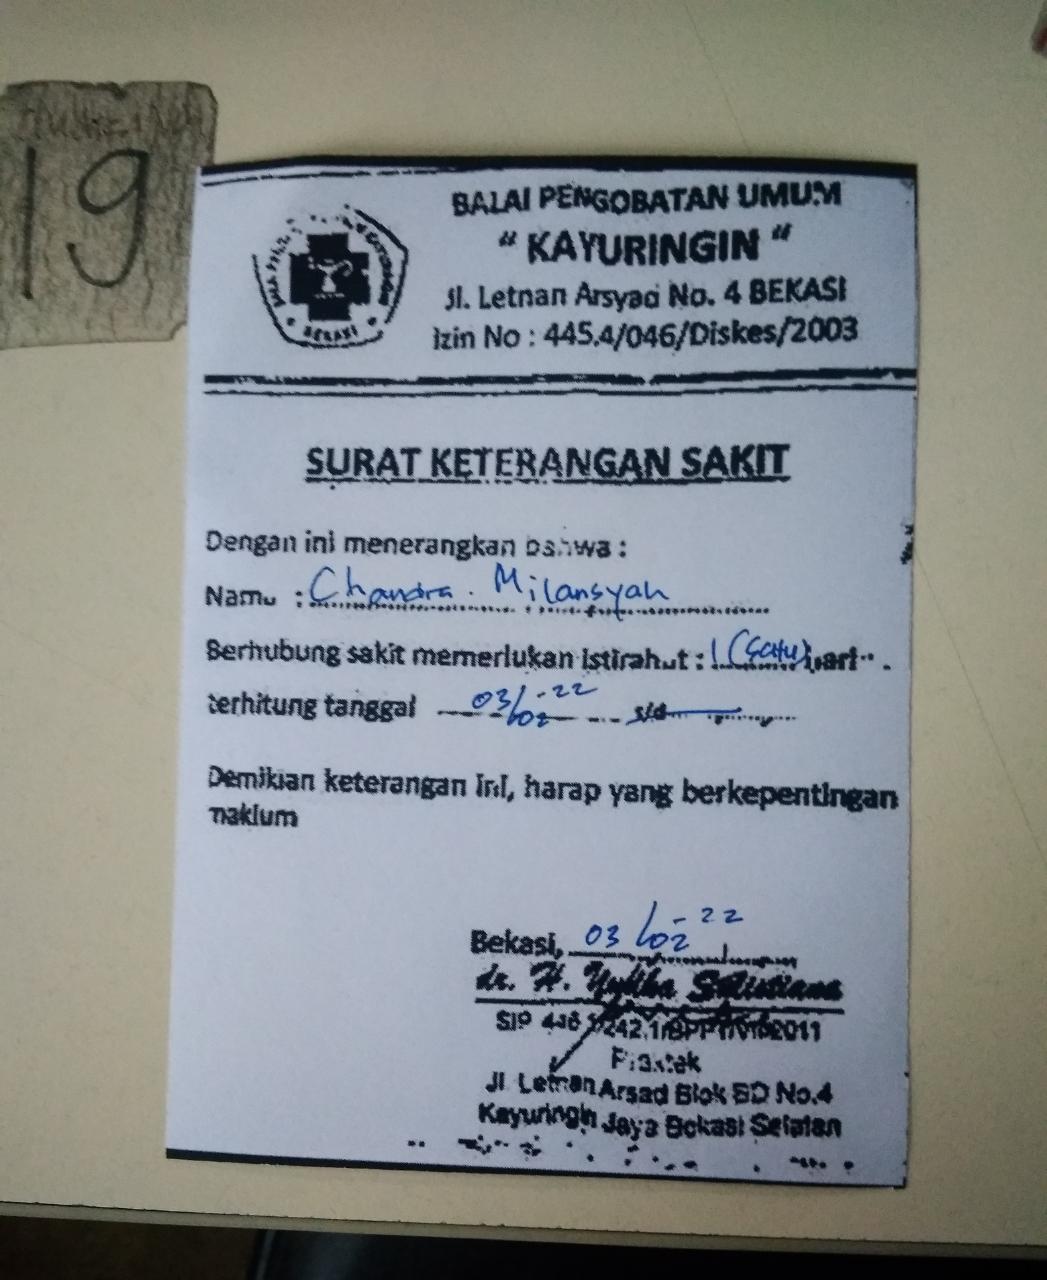 19
BALAI PENGOBATAN UMUM
“ KAYURINGIN “
Jl. Letnan Arsyad No. 4 BEKASI
Izin No : 445.4/046/Diskes/2003
BEKASI
SURAT KETERANGAN SAKIT
Dengan ini menerangkan bahwa :
Nama : Chandra. Milansyah
Berhubung sakit memerlukan istirahat : 1 (satu) hari
terhitung tanggal 03/02-22 s/d
Demikian keterangan ini, harap yang berkepentingan
maklum
Bekasi, 03/02-22
dr. H. Yudha
SIP 2011
Praktek
Jl Letnan Arsad Blok BD No.4
Kayuringin Jaya Bekasi Selatan